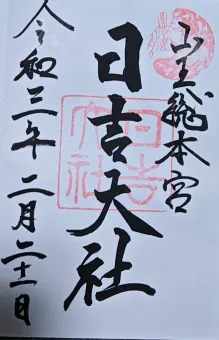 山王総本宮
日吉大社
令和三年二月二十一日
日吉大社